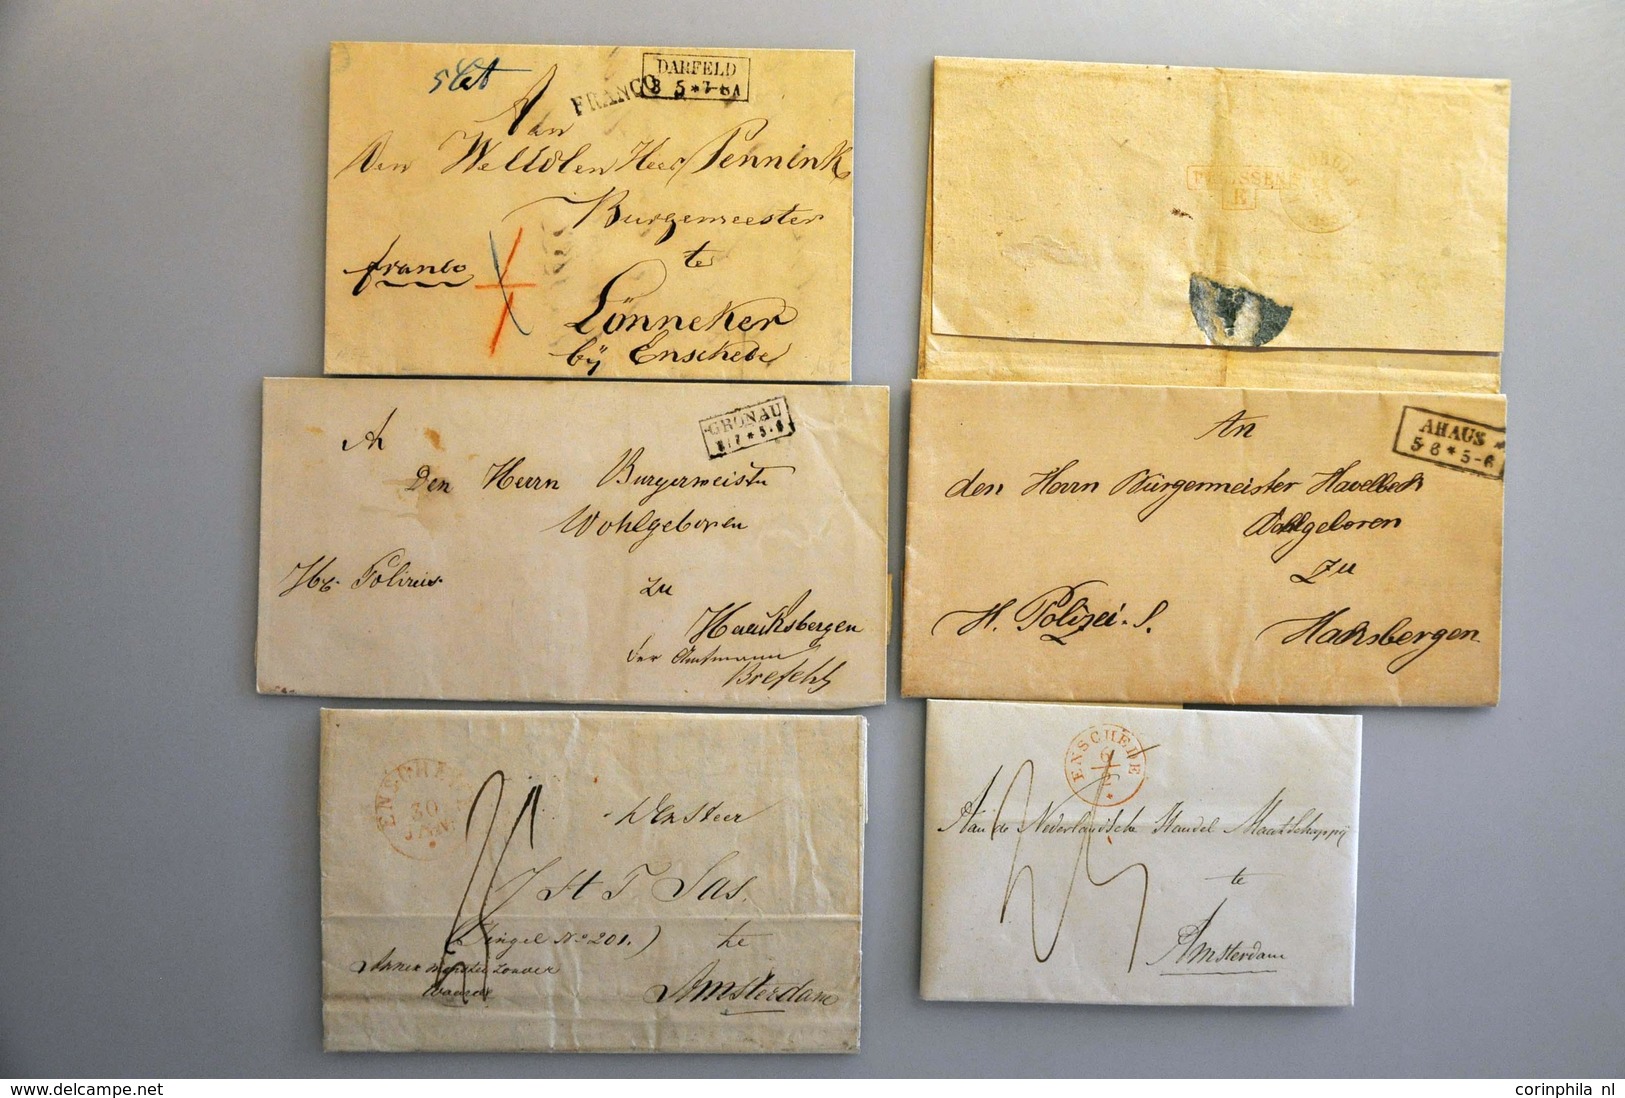 DARFELD
8 5 * 7-8A
FRANCO
Aan
Den Weledelen Heer Pennink
Burgemeester
te
franco
Lönneker
bÿ Enschede
PRUISSEN
E
GRONAU
* 5-6
An
Den Herrn Burgermeister
Wohlgeboren
zu
Haaksbergen
der Amtmann
AHAUS *
5 6 * 5-6
An
den Herrn Bürgermeister
Wohlgeboren
zu
H. Polizei. S.
Haksbergen
ENSCHEDE
30
JAN.
J St T Sas.
Singel No 201.)
te
Amsterdam
ENSCHEDE
Aan de Nederlandsche Handel Maatschappÿ
te
Amsterdam
www.delcampe.net
corinphila nl